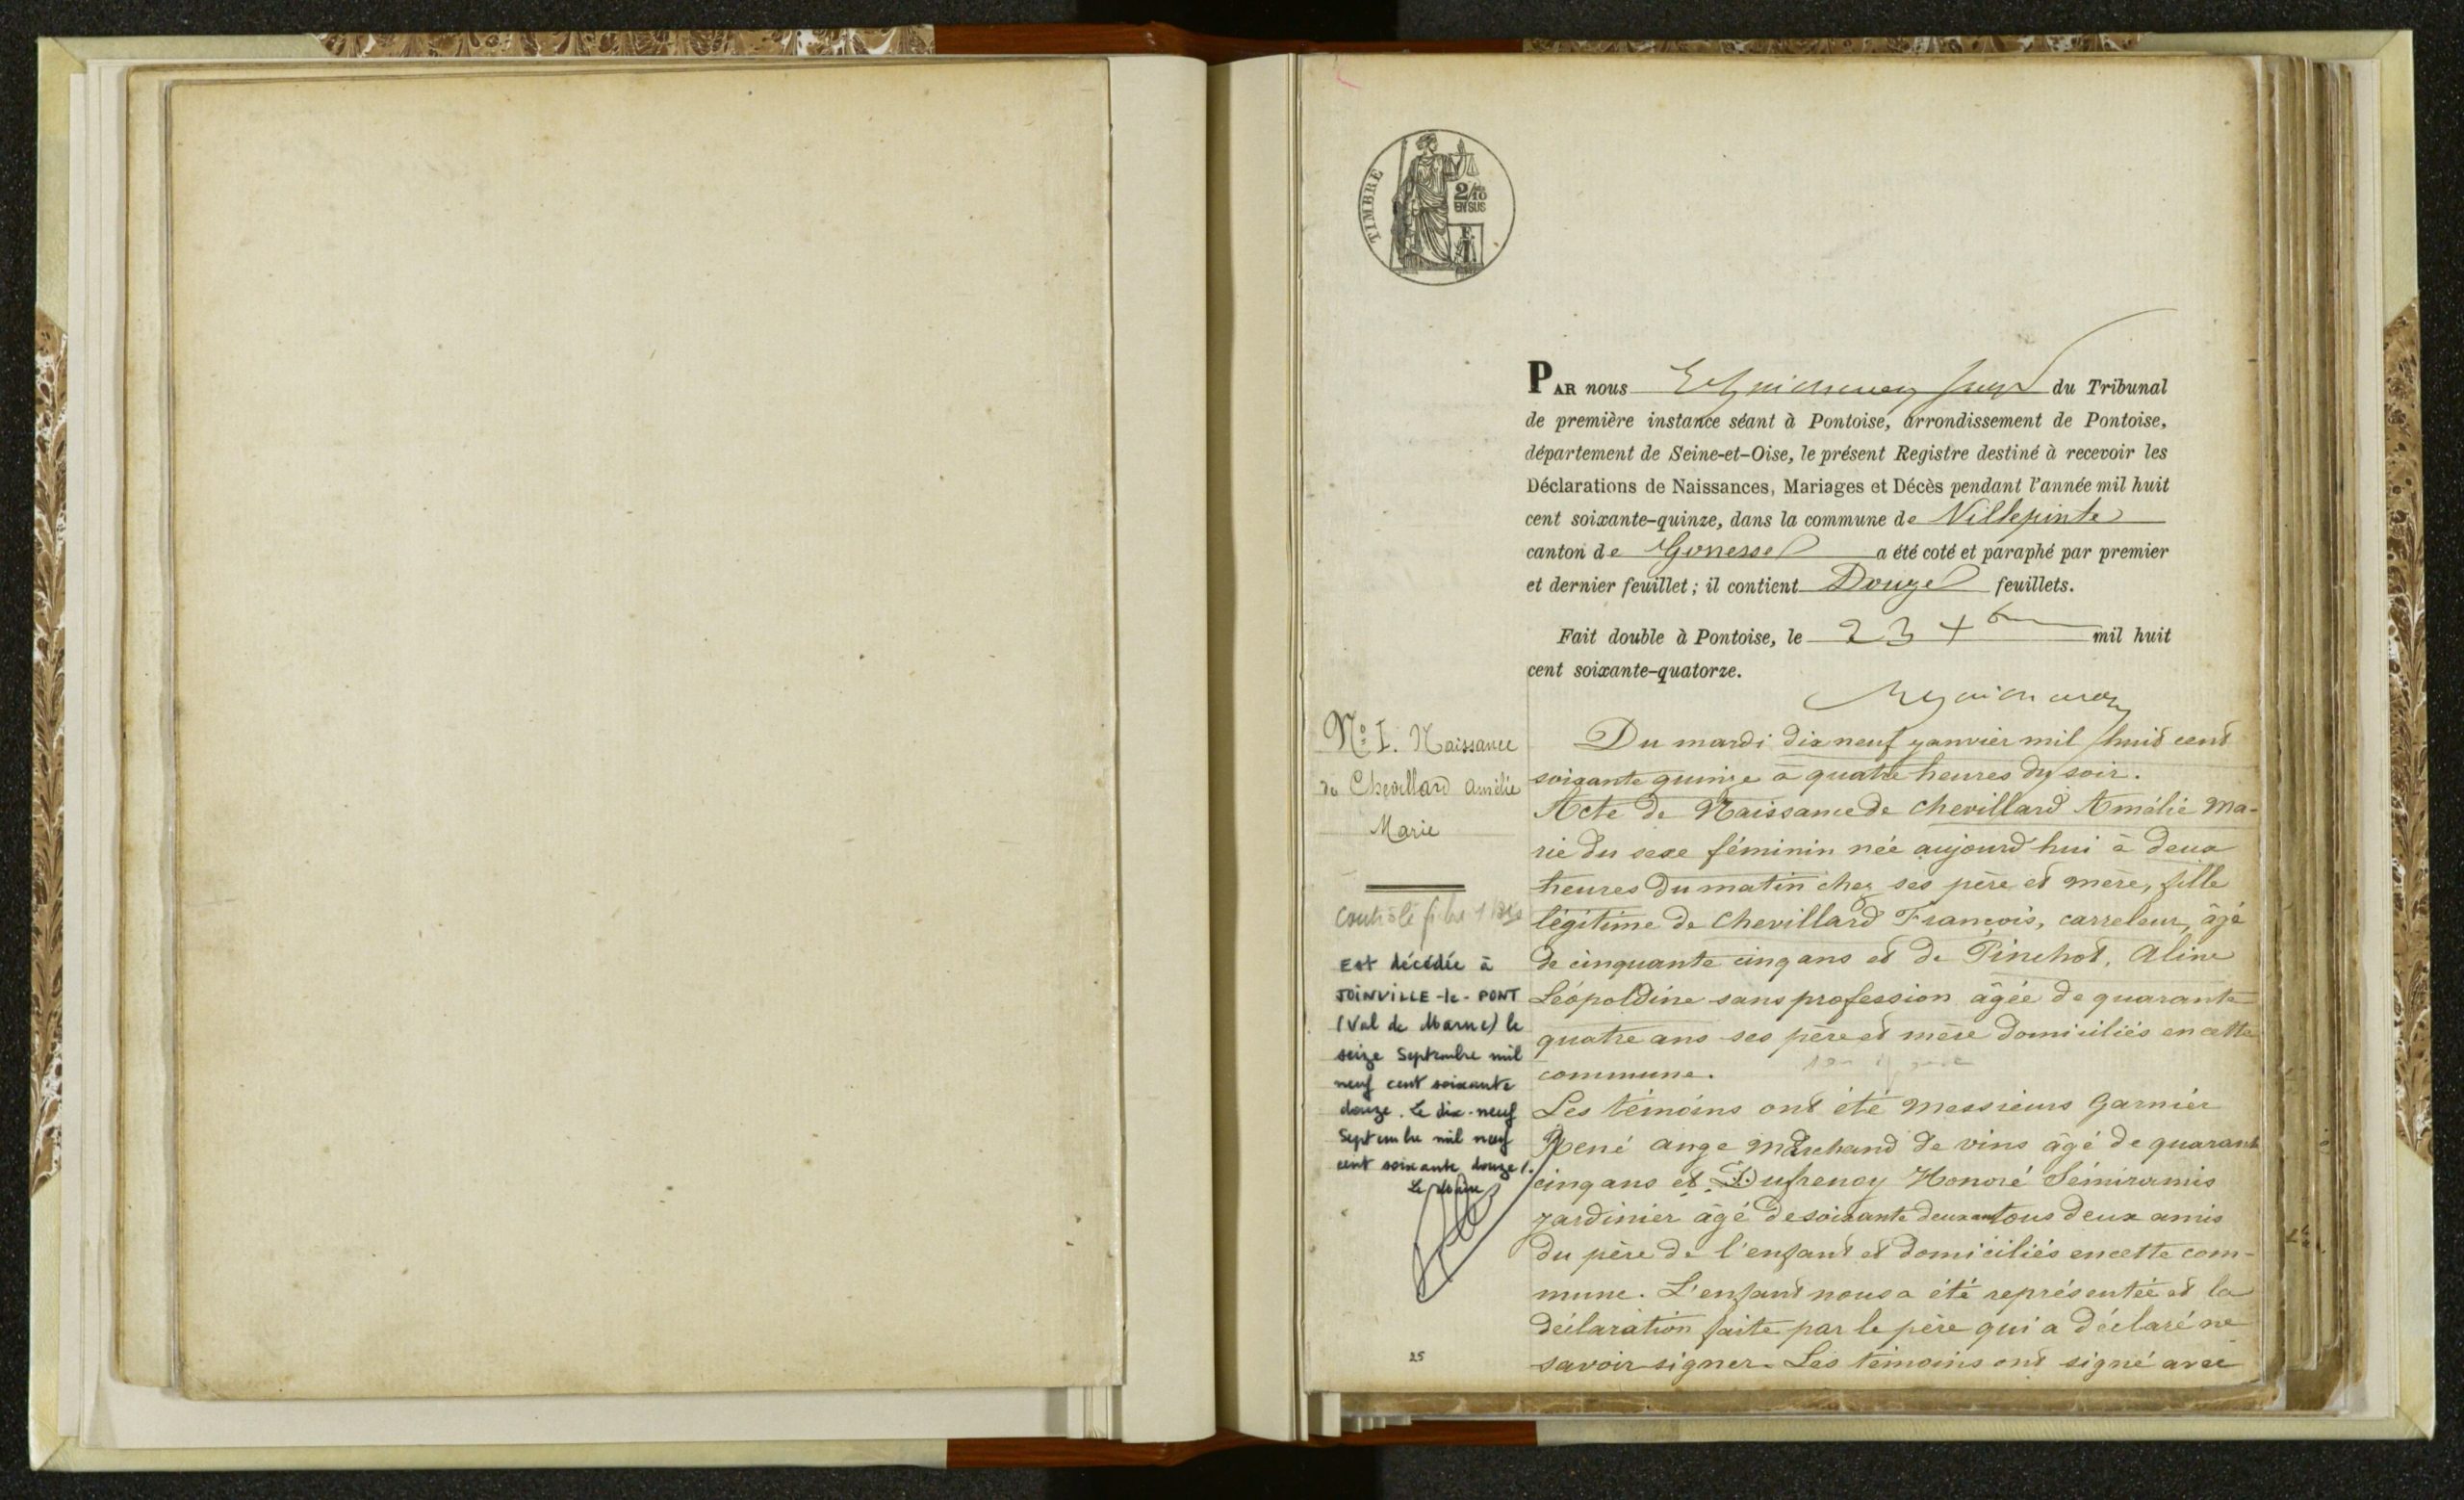 TIMBRE
2/10
EN SUS
PAR nous du Tribunal
de première instance séant à Pontoise, arrondissement de Pontoise,
département de Seine-et-Oise, le présent Registre destiné à recevoir les
Déclarations de Naissances, Mariages et Décès pendant l'année mil huit
cent soixante-quinze, dans la commune de Villepinte
canton de Gonesse a été coté et paraphé par premier
et dernier feuillet; il contient Douze feuillets.
Fait double à Pontoise, le 23 Xbre mil huit
cent soixante-quatorze.
N° 1. Naissance
de Chevillard Amélie
Marie
Contrôlé
Est décédée à
JOINVILLE-le-PONT
(Val de Marne) le
seize Septembre mil
neuf cent soixante
douze. Le dix-neuf
Septembre mil neuf
cent soixante douze/.
Le Maire
25
Du mardi dix neuf janvier mil huit cent
soixante quinze à quatre heures du soir.
Acte de Naissance de Chevillard Amélie Ma-
rie du sexe féminin née aujourd'hui à deux
heures du matin chez ses père et mère, fille
légitime de Chevillard François, carreleur, âgé
de cinquante cinq ans et de Pinchot, Aline
Léopoldine sans profession âgée de quarante
quatre ans ses père et mère domiciliés en cette
commune.
Les témoins ont été Messieurs Garnier
René Ange Marchand de vins âgé de quarante
cinq ans et Dufrenoy Honoré Sémiramis
jardinier âgé de soixante deux ans tous deux amis
du père de l'enfant et domiciliés en cette com-
mune. L'enfant nous a été représentée et la
déclaration faite par le père qui a déclaré ne
savoir signer. Les témoins ont signé avec